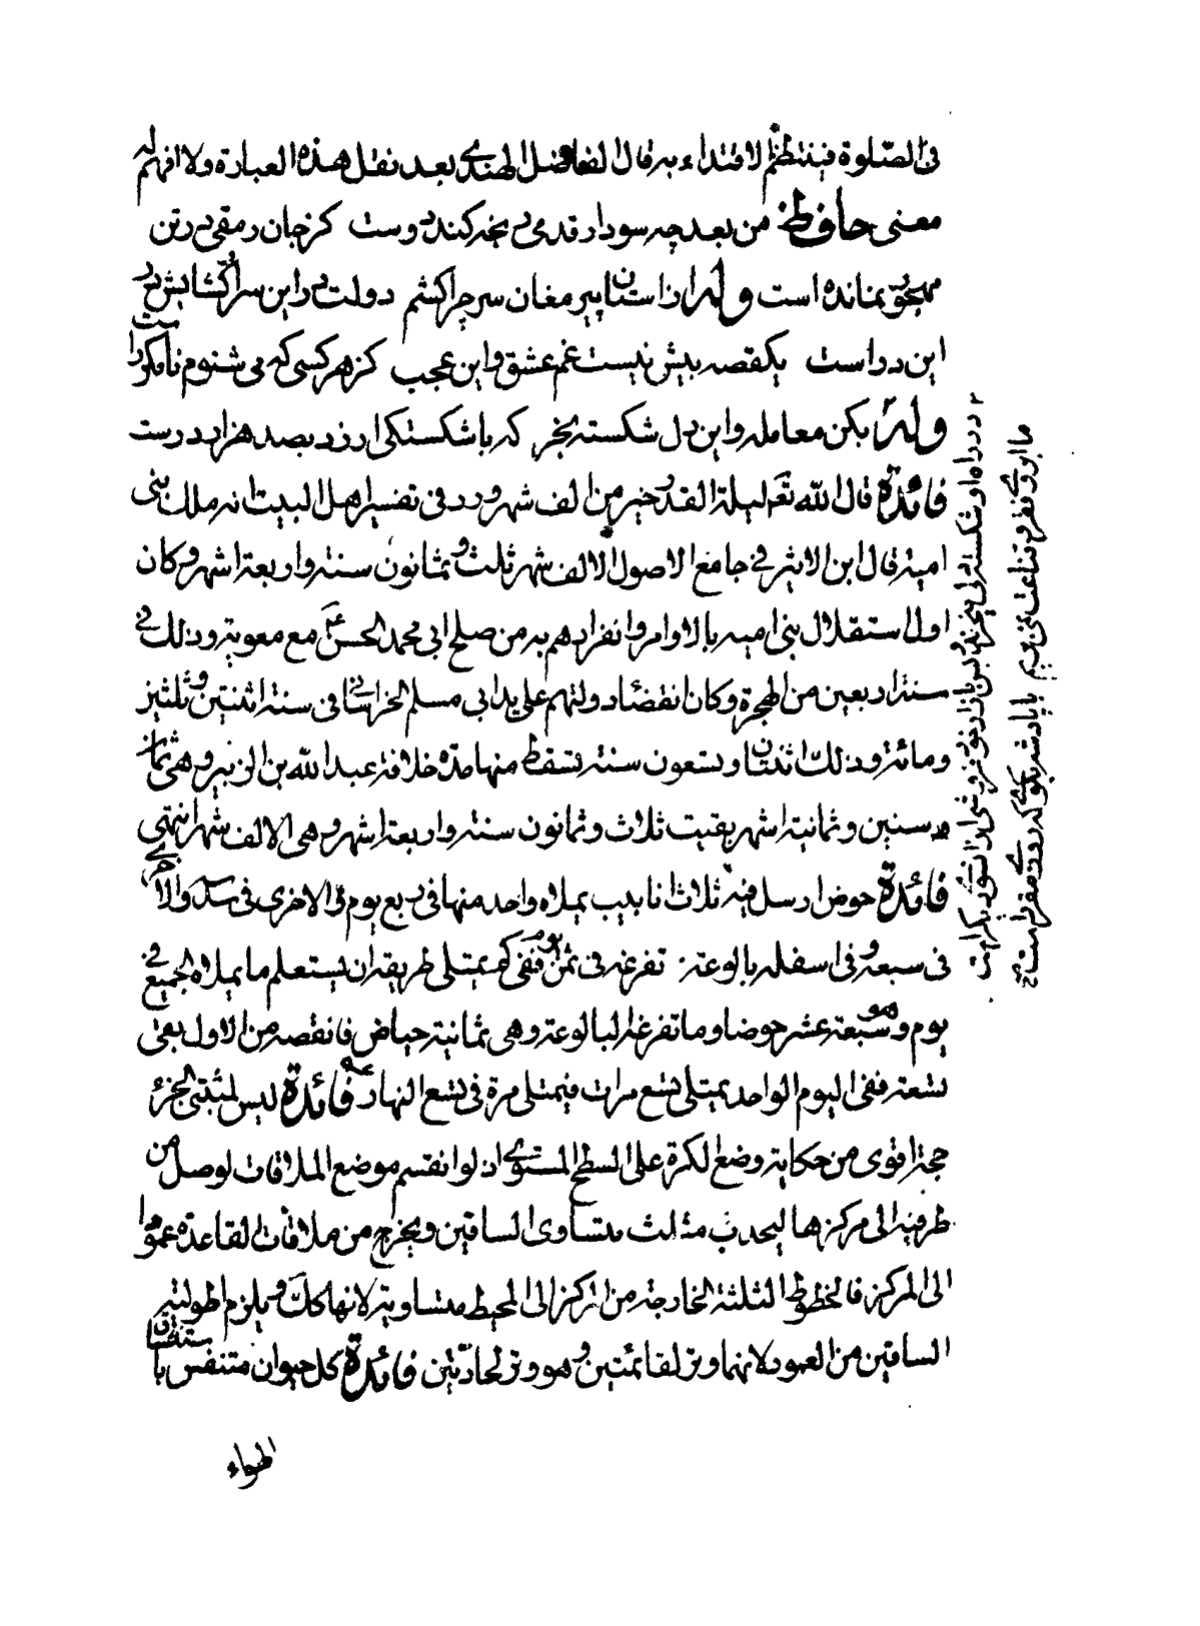 فى الصّلوة فينتظم الاقتداء به قال الفاضل الهندى بعد نقل هذه العبارة ولا افهم له
معنى حافظ من بعد چه سود ار قدمى رنجه كند دوست كز جان رمقى در تن
مهجور نمانده است وله از استان پير مغان سر چرا كشم دولت در اين سرا و گشايش در
اين در است يكقصه بيش نيست غم عشق واين عجب كز هر كسى كه مى شنوم نامكرر است
وله بكن معامله واين دل شكسته بخر كه با شكستكى ارزد بصد هزار درست
فائدة قال الله تعالى ليلة القدر خير من الف شهر ورد فى تفسير اهل البيت انه ملك بنى
امية قال ابن الاثير فى جامع الاصول الالف شهر ثلث وثمانون سنة واربعة اشهر وكان
اول استقلال بنى اميه بالاوامر وانفرادهم به من صلح ابى محمد الحسن ع مع معوية وذلك فى
سنة اربعين من الهجرة وكان انقضاء دولتهم على يد ابى مسلم الخراسانى فى سنة اثنتين وثلثين
ومائة وذلك اثنتان وتسعون سنة تسقط منها مدة خلافة عبد الله بن الزبير وهى ثمان
سنين وثمانية اشهر بقيت ثلاث وثمانون سنة واربعة اشهر وهى الالف شهر انتهى
فائدة حوض ارسل فيه ثلاث انابيب يملاه واحد منها فى ربع يوم والاخرى فى سدسه والاخرى
فى سبعه وفى اسفله بالوعة تفرغه فى ثمن يوم ففى كم يمتلى طريقه ان يستعلم ما يملاه الجميع فى
يوم وهو سبعة عشر حوضا وما تفرغه البالوعة وهى ثمانية حياض فانقصه من الاول بقى
تسعة ففى اليوم الواحد يمتلى تسع مرات فيمتلى مرة فى تسع النهار فائدة ليس لمثبتى الجزء
حجة اقوى من حكاية وضع الكرة على السطح المستوى اذ لو انقسم موضع الملاقات لوصل من
طرفيه الى مركزها ليحدث مثلث متساوى الساقين ويخرج من ملاقات القاعدة عمودا
الى المركز فالخطوط الثلثة الخارجة من المركز الى المحيط متساوية لانها كك ويلزم اطولية
الساقين من العمود لانهما وتر القائمتين وهو وتر الحادتين فائدة كل حيوان متنفس باستنشاق
الهواء
در راه او شكسته دلى ميخرند وبس بازار خودفروشى از آن سوى ديگر است
ما ابروى فقر وقناعت نمى بريم با پادشه بگوى كه روزى مقرر است